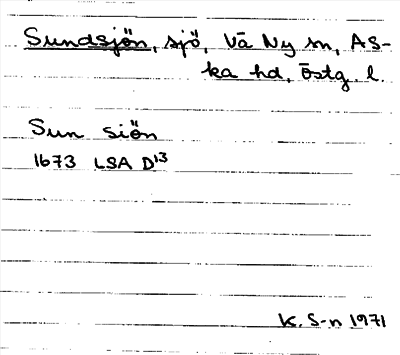 Sundsjön, sjö, Vä Ny sn, As-
ka hd, Östg. l.
Sun siön
1673 LSA D13
K. S-n 1971